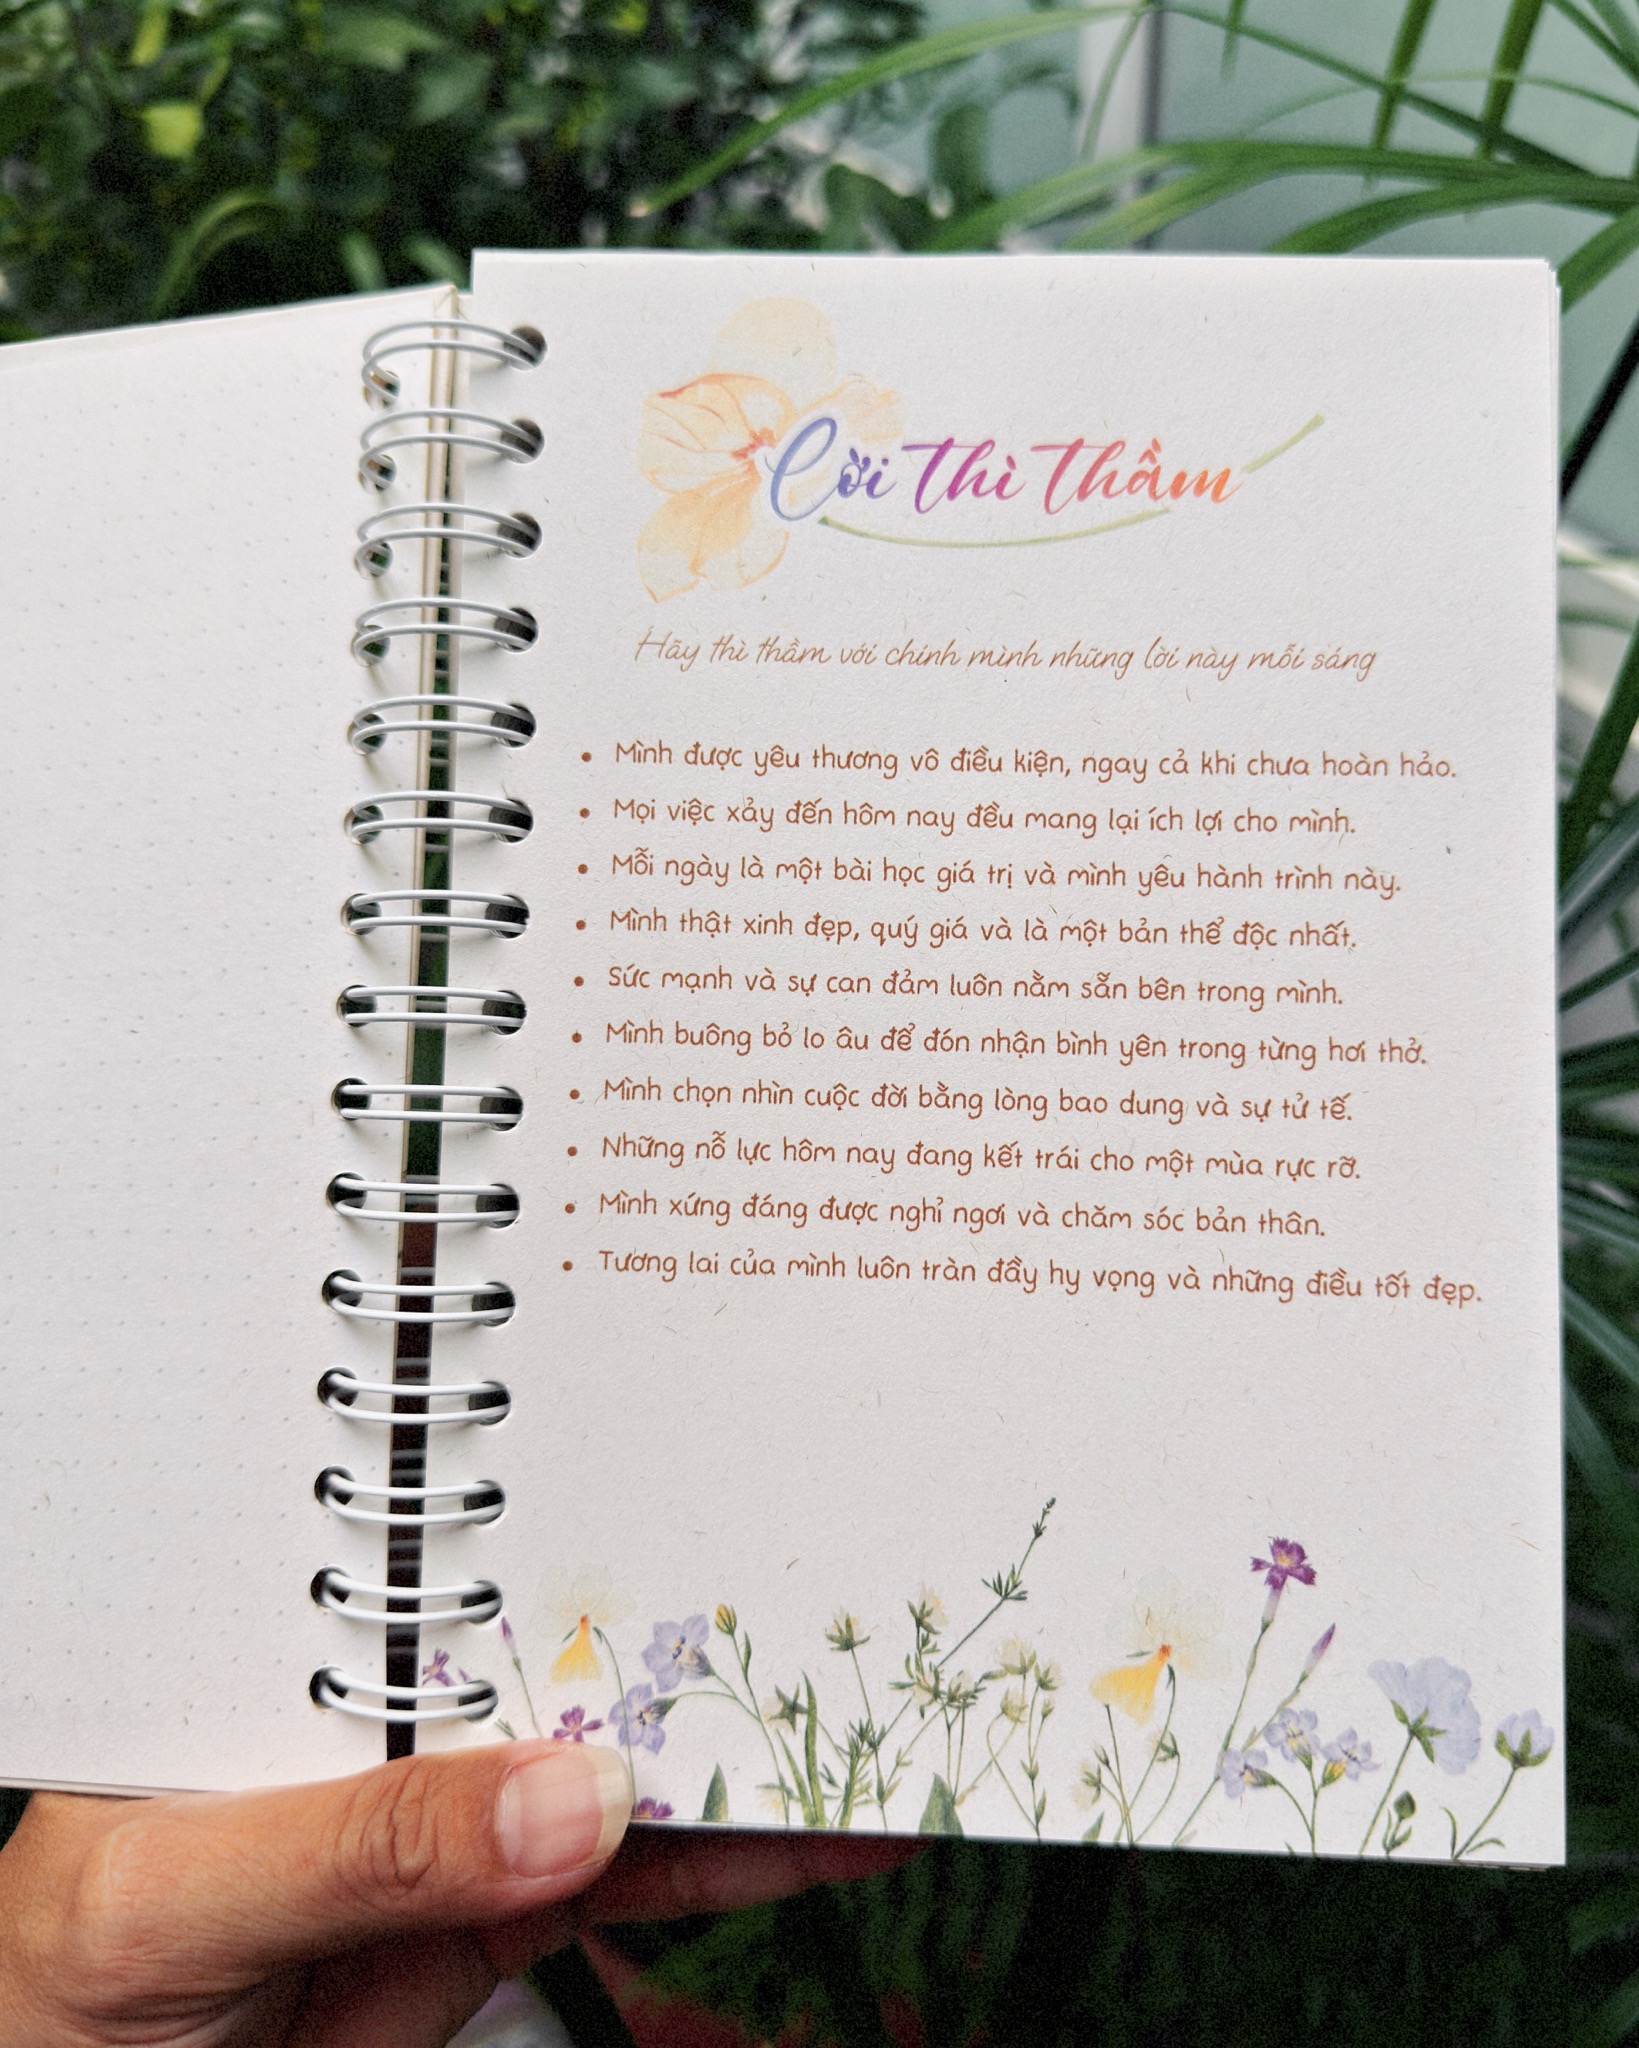 Lời thì thầm
Hãy thì thầm với chính mình những lời này mỗi sáng
• Mình được yêu thương vô điều kiện, ngay cả khi chưa hoàn hảo.
• Mọi việc xảy đến hôm nay đều mang lại ích lợi cho mình.
• Mỗi ngày là một bài học giá trị và mình yêu hành trình này.
• Mình thật xinh đẹp, quý giá và là một bản thể độc nhất.
• Sức mạnh và sự can đảm luôn nằm sẵn bên trong mình.
• Mình buông bỏ lo âu để đón nhận bình yên trong từng hơi thở.
• Mình chọn nhìn cuộc đời bằng lòng bao dung và sự tử tế.
• Những nỗ lực hôm nay đang kết trái cho một mùa rực rỡ.
• Mình xứng đáng được nghỉ ngơi và chăm sóc bản thân.
• Tương lai của mình luôn tràn đầy hy vọng và những điều tốt đẹp.